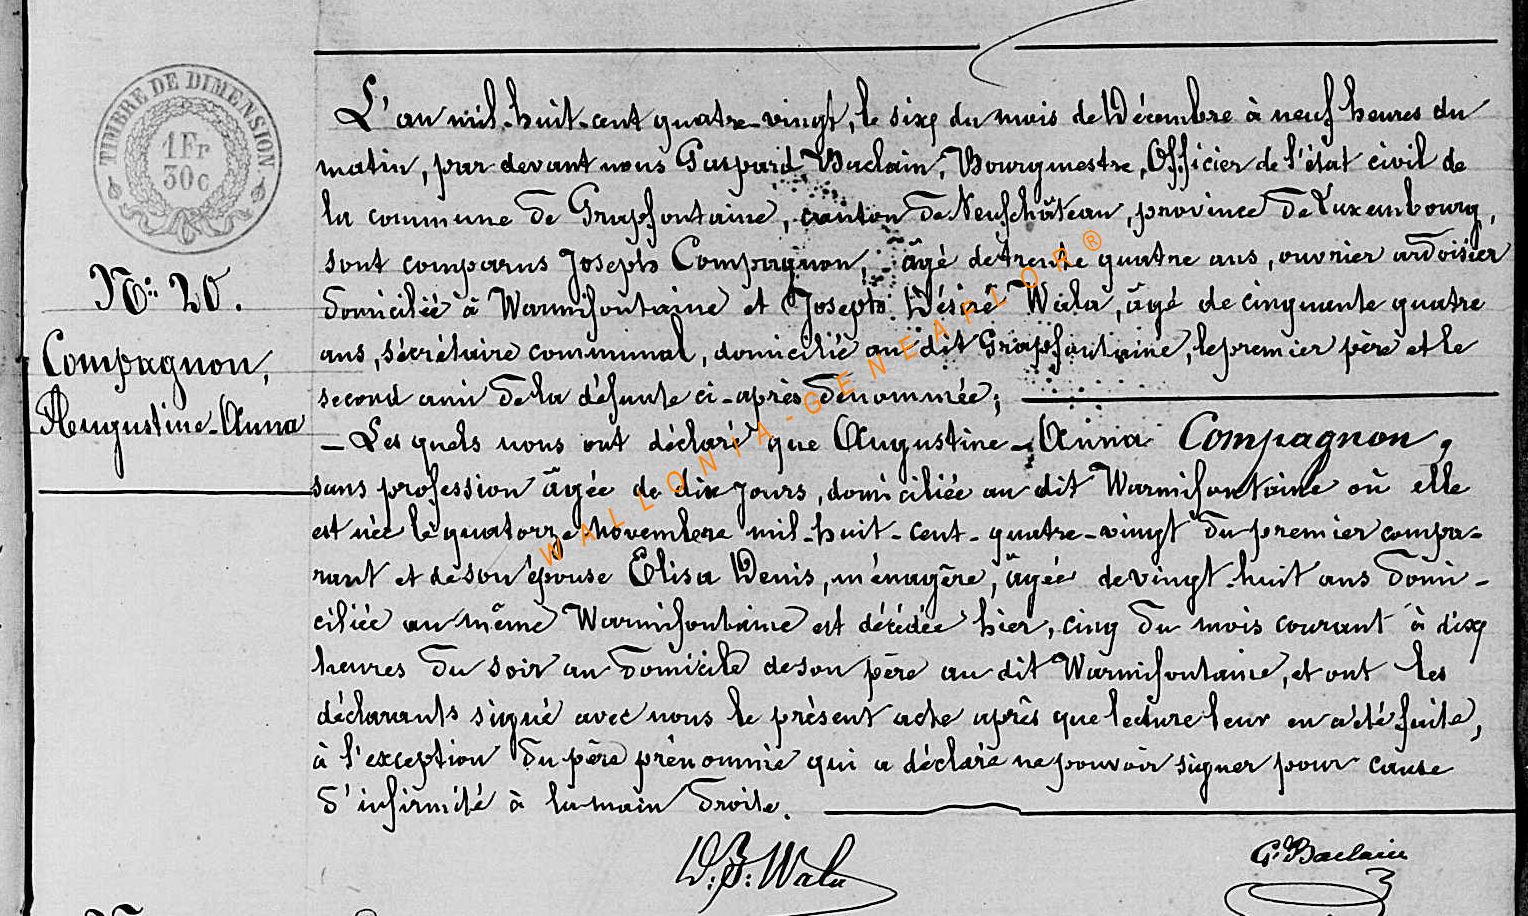 TIMBRE DE DIMENSION
1 Fr
30 c
N° 20.
Compagnon,
Augustine-Anna
L'an mil-huit-cent quatre-vingt, le six du mois de Décembre à neuf heures du
matin, par devant nous Gaspard Baclain, Bourgmestre, Officier de l'état civil de
la commune de Grapfontaine, canton de Neufchâteau, province de Luxembourg,
sont comparus Joseph Compagnon, âgé de trente quatre ans, ouvrier ardoisier
domicilié à Warmifontaine et Joseph Désiré Wala, âgé de cinquante quatre
ans, sécrétaire communal, domicilié au dit Grapfontaine, le premier père et le
second ami de la défunte ci-après dénommée;
— Les quels nous ont déclaré que Augustine-Anna Compagnon,
sans profession âgée de dix jours, domiciliée au dit Warmifontaine où elle
est née le quatorze Novembre mil-huit-cent-quatre-vingt du premier compa-
rant et de son épouse Elisa Denis, ménagère, âgée de vingt-huit ans domi-
ciliée au même Warmifontaine est décédée hier, cinq du mois courant à dix
heures du soir au domicile de son père au dit Warmifontaine, et ont les
déclarants signé avec nous le présent acte après que lecture leur en a été faite,
à l'exception du père prénommé qui a déclaré ne pouvoir signer pour cause
d'infirmité à la main droite.
D. J. Wala
G. Baclain
WALLONIA-GENEAFLOR®